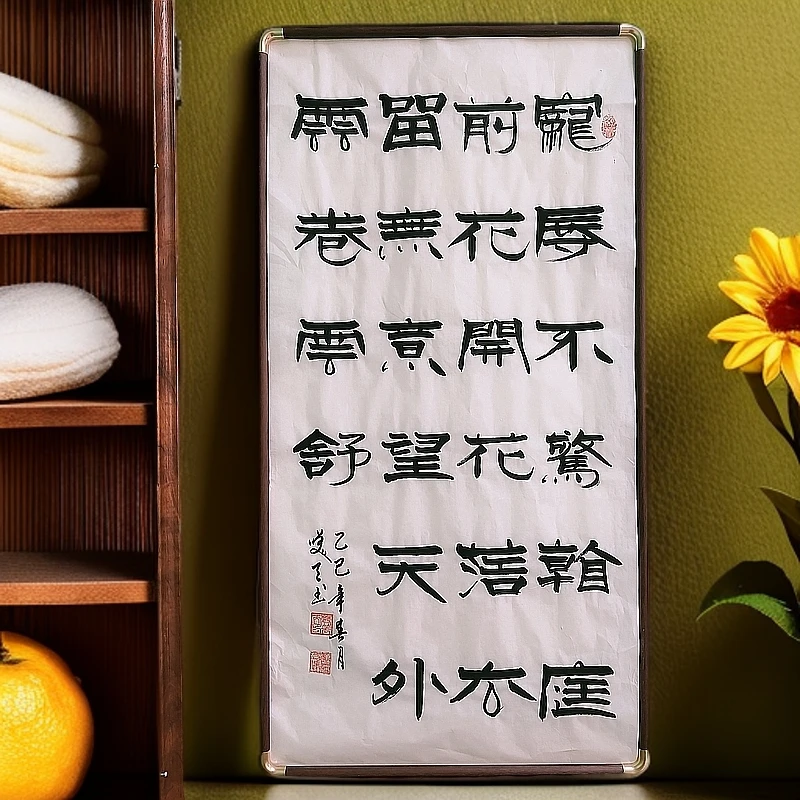 寵辱不驚看庭
前花開花落去
留無意望天外
雲卷雲舒
乙巳年春月